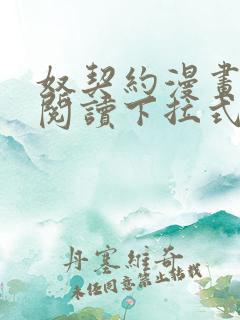 奴契約漫畫
閱讀下拉式
丹塞維奇
未经同意禁止转载